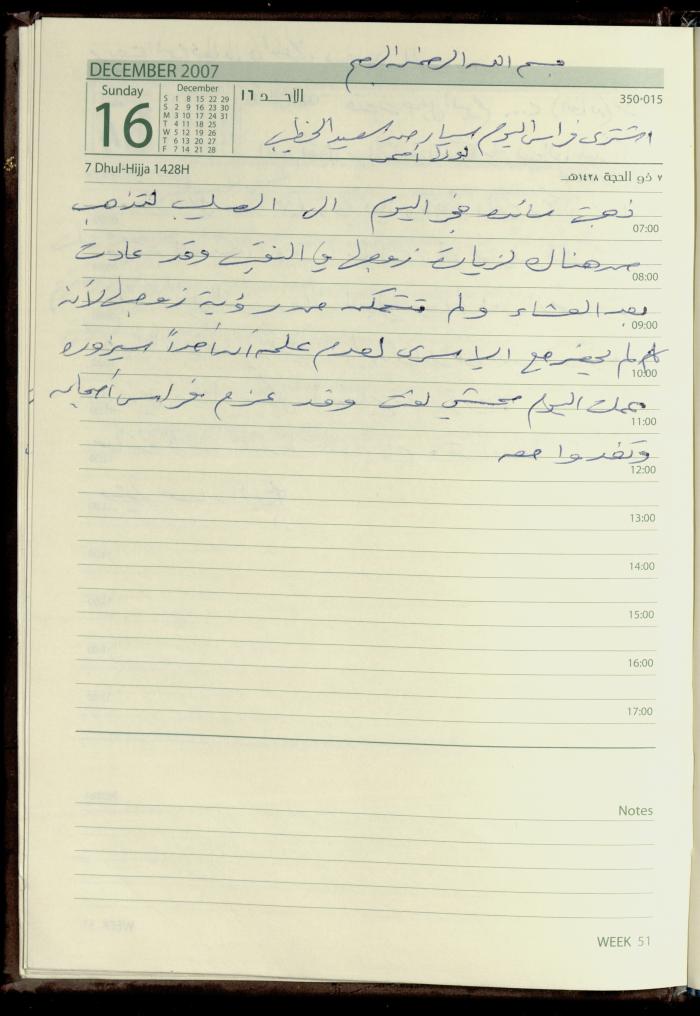 بسم الله الرحمن الرحيم
DECEMBER 2007
Sunday
16
December
S 1 8 15 22 29
S 2 9 16 23 30
M 3 10 17 24 31
T 4 11 18 25
W 5 12 19 26
T 6 13 20 27
F 7 14 21 28
الأحد ١٦
350-015
اشترى فراس اليوم سيارة من سعيد الخطيب
7 Dhul-Hijja 1428H
٧ ذو الحجة ١٤٢٨هـ
ذهبت فجر اليوم الى الصليب لتذهب
07:00
من هناك لزيارة زوجها في النقب وقد عادت
08:00
بعد العشاء ولم تتمكن من رؤية زوجها لأنه
09:00
لم يحضر مع الاسرى لعدم علمه أن أحداً سيزوره
10:00
عملت اليوم محشي لفت وقد عزم فراس أصحابه
11:00
وتغدوا معه
12:00
13:00
14:00
15:00
16:00
17:00
Notes
WEEK 51